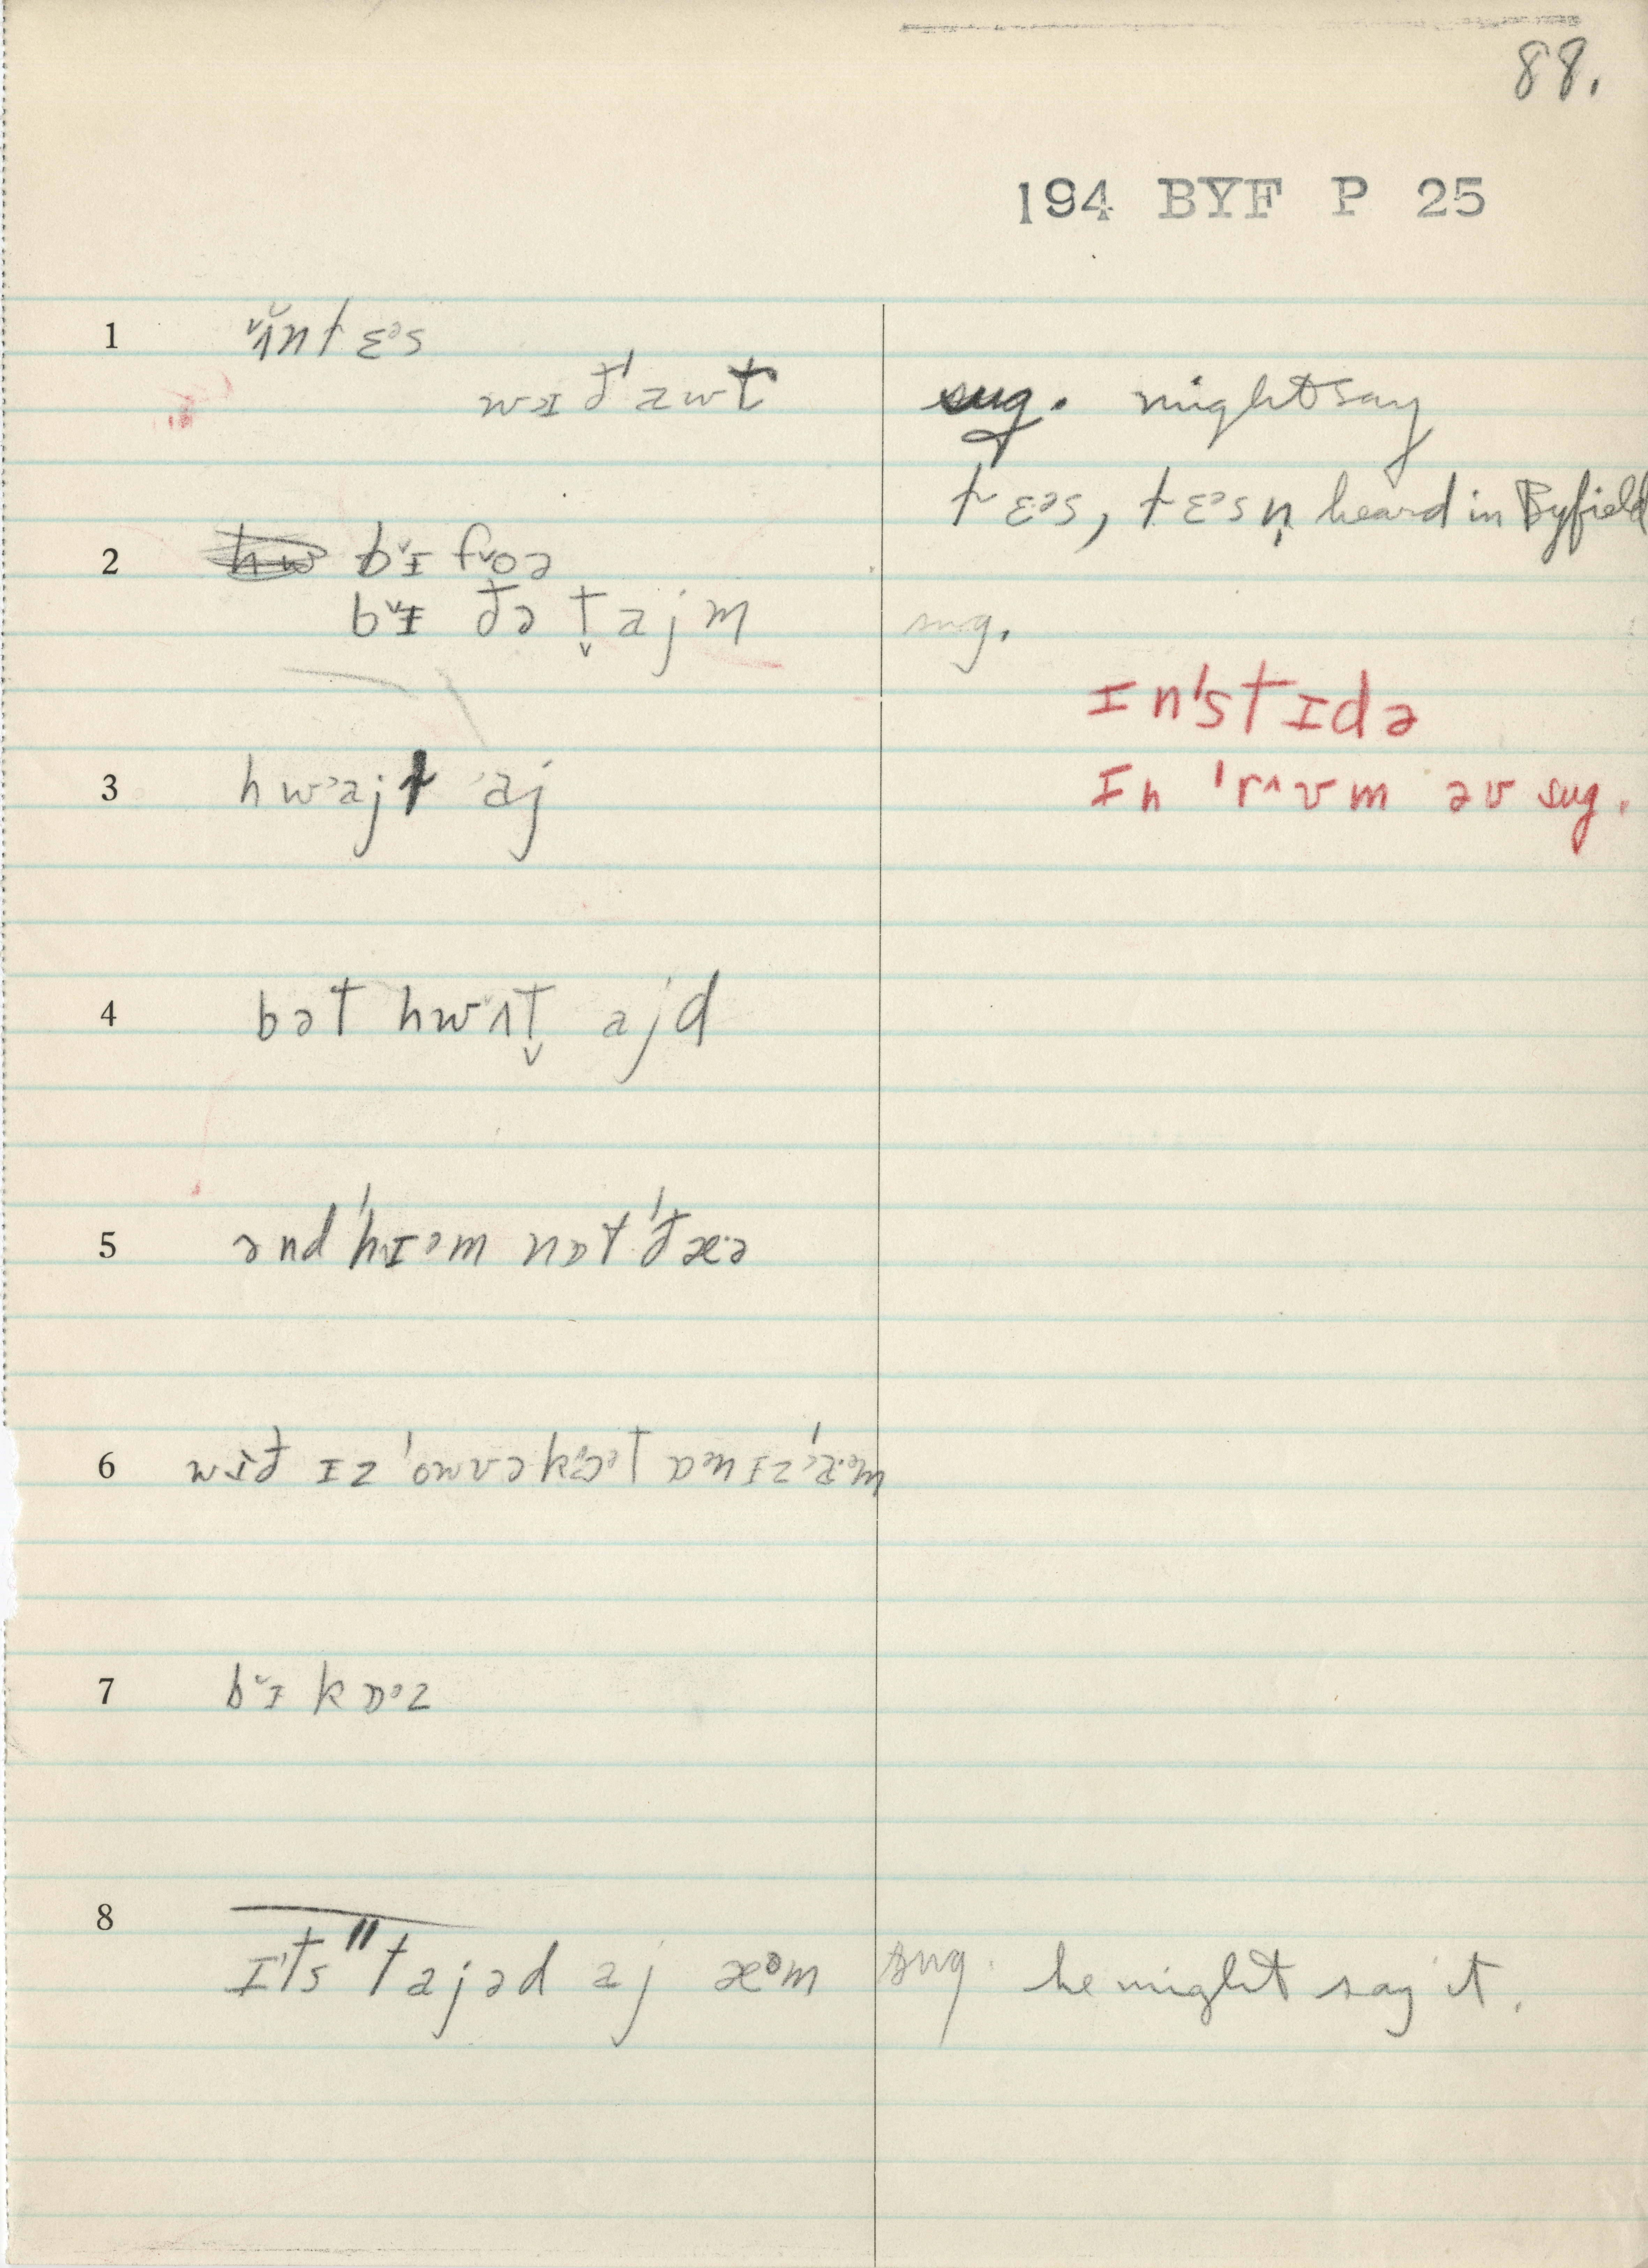 88.
194 BYF P 25
1 ʌ̌nt ɛᵊs
wɪð'awt sug. might say
t ɛᵊs, t ɛᵊs n̩ heard in Byfield
2 bɪ̌ fǒə
bɪ̌ ðə t̬ajm sug.
ɪn'stɪdə
3 hwᵊajt 'aj ɪn 'rʌʊm əv sug.
4 bət hwʌ̌t̬ ajd
5 ənd 'hɪᵊm nɒt 'ðæ·ə
6 wɪð ɪz 'owvəkɒᵊt ɒᵊn ɪz 'a·ᵊm
7 bɪ̌ kɒᵊz
8 ɪts "tajəd aj æᵊm sug. he might say it.